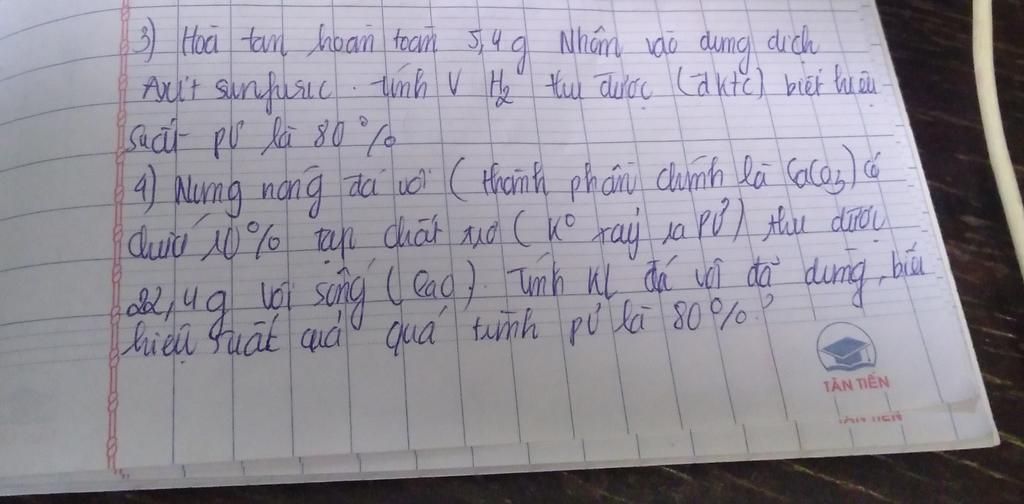 3) Hoà tan hoàn toàn 5,4 g Nhôm vào dung dịch
Axit sunfusic. tính V H2 thu được (đktc) biết hiệu
suất pư là 80%
4) Nung nóng đá vôi (thành phần chính là CaCO3) có
chứa 10% tạp chất trơ (K° xảy ra PƯ) thu được
22,4 g vôi sống (CaO). Tính KL đá vôi đã dùng, biết
hiệu suất quá quá trình pư là 80%?
TÂN TIẾN
TÂN TIẾN